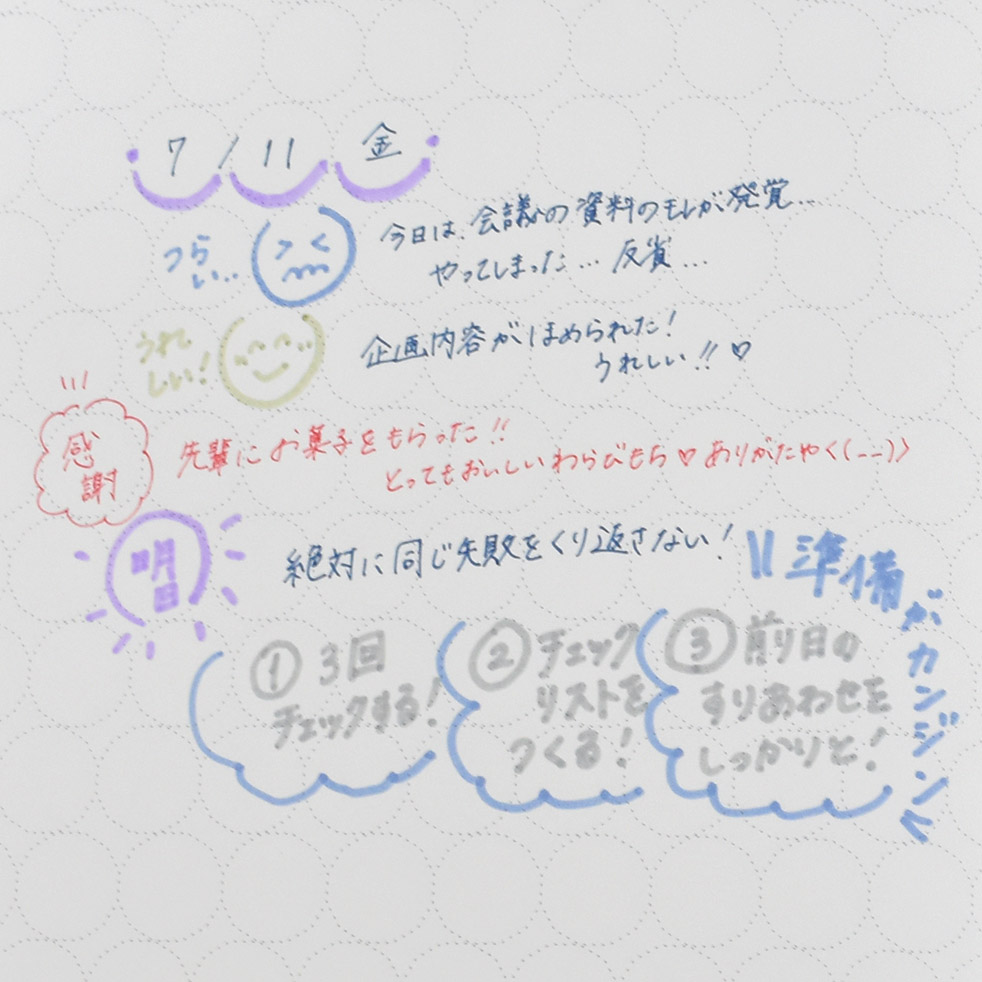 7/11 金
つら
い…
今日は、会議の資料のモレが発覚…
やってしまった…反省…
うれ
しい!
企画内容がほめられた!
うれしい!!♡
感
謝
先輩にお菓子をもらった!!
とってもおいしいわらびもち♡ありがたや<(_ _)>
明
日
絶対に同じ失敗をくり返さない!
準備がカンジン
① 3回
チェックする!
② チェック
リストを
つくる!
③ 前日の
すりあわせを
しっかりと!